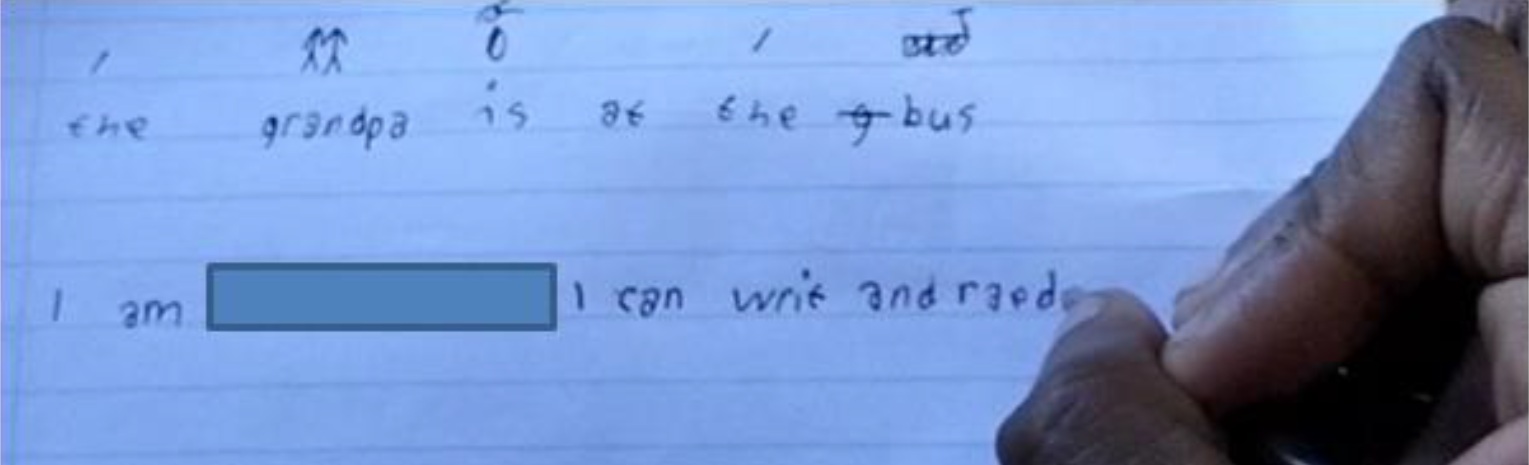 the grandpa is at the g bus
I am I can writ and raed